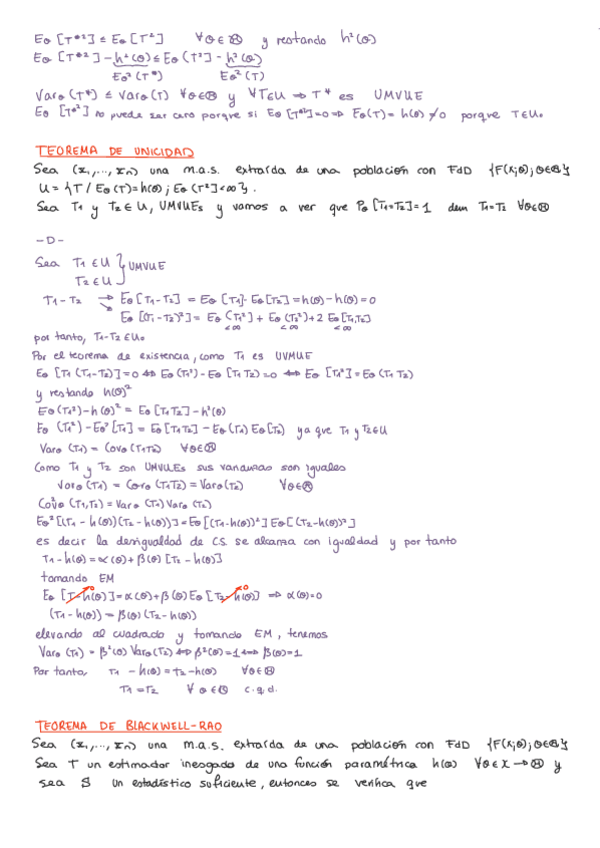 Eθ [T*²] ≤ Eθ [T²] ∀θ∈Θ y restando h²(θ)
Eθ [T*²] - h²(θ) ≤ Eθ (T²) - h²(θ)
Eθ²(T*) Eθ²(T)
Varθ (T*) ≤ Varθ (T) ∀θ∈Θ y ∀T∈U ⇒ T* es UMVUE
Eθ [T*²] no puede ser cero porque si Eθ [T*²]=0 ⇒ Eθ(T)= h(θ) ≠0 porque T∈U₀
TEOREMA DE UNICIDAD
Sea (x₁,..., xn) una m.a.s. extraída de una población con FdD {F(x;θ); θ∈Θ}
U = {T / Eθ (T)=h(θ); Eθ (T²)<∞}.
Sea T1 y T2 ∈ U, UMVUEs y vamos a ver que Pθ [T1=T2]=1 dem T1=T2 ∀θ∈Θ
-D-
Sea T1 ∈ U
T2 ∈ U } UMVUE
T1 - T2 → Eθ [T1-T2] = Eθ [T1] - Eθ [T2] = h(θ) - h(θ) = 0
Eθ [(T1-T2)²] = Eθ (T1²) + Eθ (T2²) + 2 Eθ [T1,T2]
<∞ <∞ <∞
por tanto, T1-T2 ∈ U₀
Por el teorema de existencia, como T1 es UVMUE
Eθ [T1 (T1-T2)] = 0 ⇔ Eθ (T1²) - Eθ [T1 T2] = 0 ⇔ Eθ [T1²] = Eθ (T1 T2)
y restando h(θ)²
Eθ (T1²) - h(θ)² = Eθ [T1T2] - h²(θ)
Eθ (T1²) - Eθ² [T1] = Eθ [T1T2] - Eθ (T1) Eθ [T2] ya que T1 y T2∈U
Varθ (T1) = Covθ (T1T2) ∀θ∈Θ
Como T1 y T2 son UMVUEs sus varianzas son iguales
Varθ (T1) = Covθ (T1T2) = Varθ (T2) ∀θ∈Θ
Cov²θ (T1,T2) = Varθ (T1) Varθ (T2)
Eθ² [(T1 - h(θ)) (T2 - h(θ))] = Eθ [(T1-h(θ))²] Eθ [(T2-h(θ))²]
es decir la desigualdad de CS. se alcanza con igualdad y por tanto
T1 - h(θ) = α(θ) + β(θ) [T2 - h(θ)]
tomando EM
Eθ [T-h(θ)] = α(θ) + β(θ) Eθ [T2-h(θ)] ⇒ α(θ)=0
(T1-h(θ)) = β(θ) (T2-h(θ))
elevando al cuadrado y tomando EM, tenemos
Varθ (T1) = β²(θ) Varθ (T2) ⇔ β²(θ) = 1 ⇔ β(θ)=1
Por tanto, T1 - h(θ) = T2 - h(θ) ∀θ∈Θ
T1 = T2 ∀θ∈Θ c.q.d.
TEOREMA DE BLACKWELL-RAO
Sea (x₁,..., xn) una m.a.s. extraída de una población con FdD {F(x;θ); θ∈Θ}
Sea T un estimador insesgado de una función paramétrica h(θ) ∀θ∈X → Θ y
sea S un estadístico suficiente, entonces se verifica que